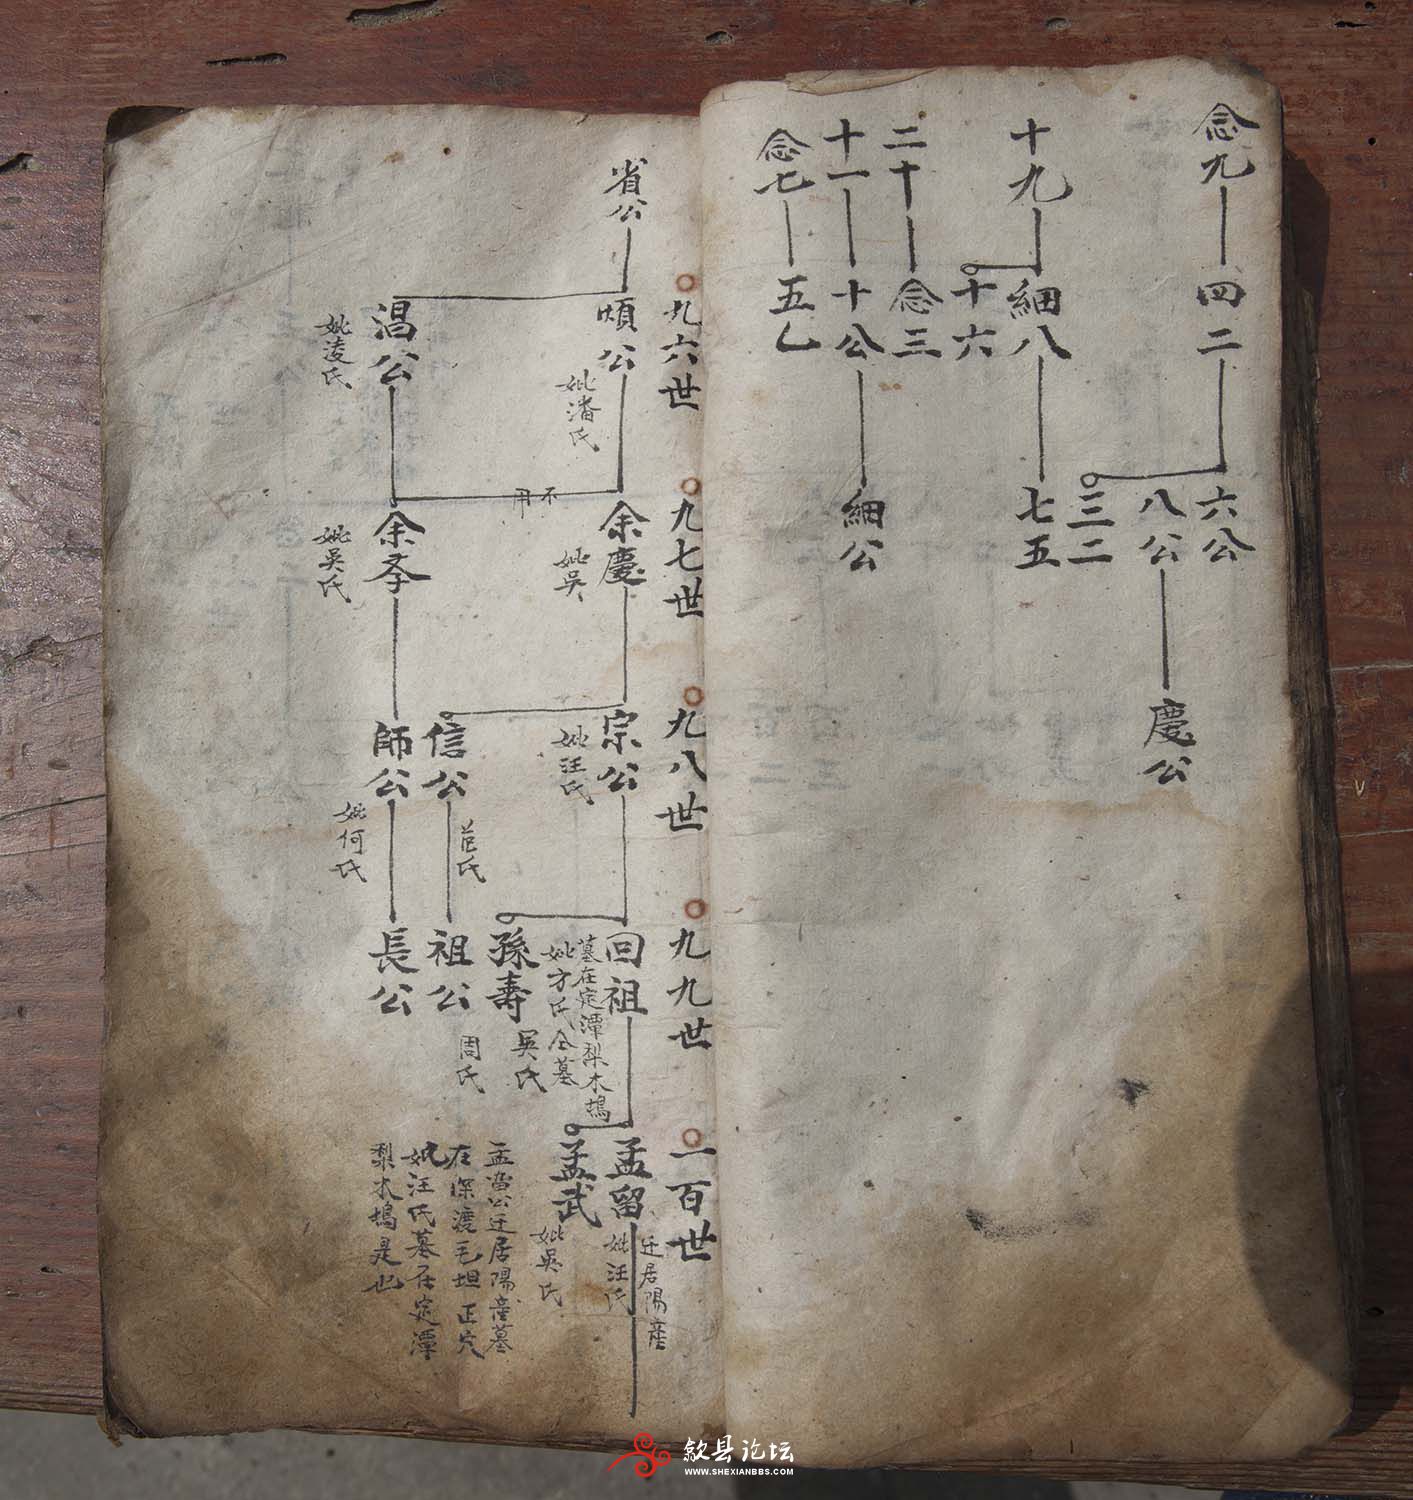 念九
四二
六公
八公
慶公
三二
十九
細八
七五
十六
二十
念三
十一
十公
細公
念七
五乙
九六世
九七世
九八世
九九世
一百世
省公
頌公
妣潘氏
淐公
妣淩氏
不用
余慶
妣吳
余孝
妣吳氏
宗公
妣汪氏
信公
范氏
師公
妣何氏
回祖
墓在定潭梨木塢
妣方氏仝墓
孫壽
吳氏
祖公
周氏
長公
孟留
迁居陽産
妣汪氏
孟武
妣吳氏
孟畱公迁居陽産墓
在深渡毛坦正穴
妣汪氏墓在定潭
梨木塢是也
歙县论坛
WWW.SHEXIANBBS.COM